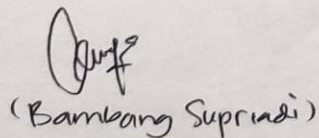 (Bambang Supriadi)